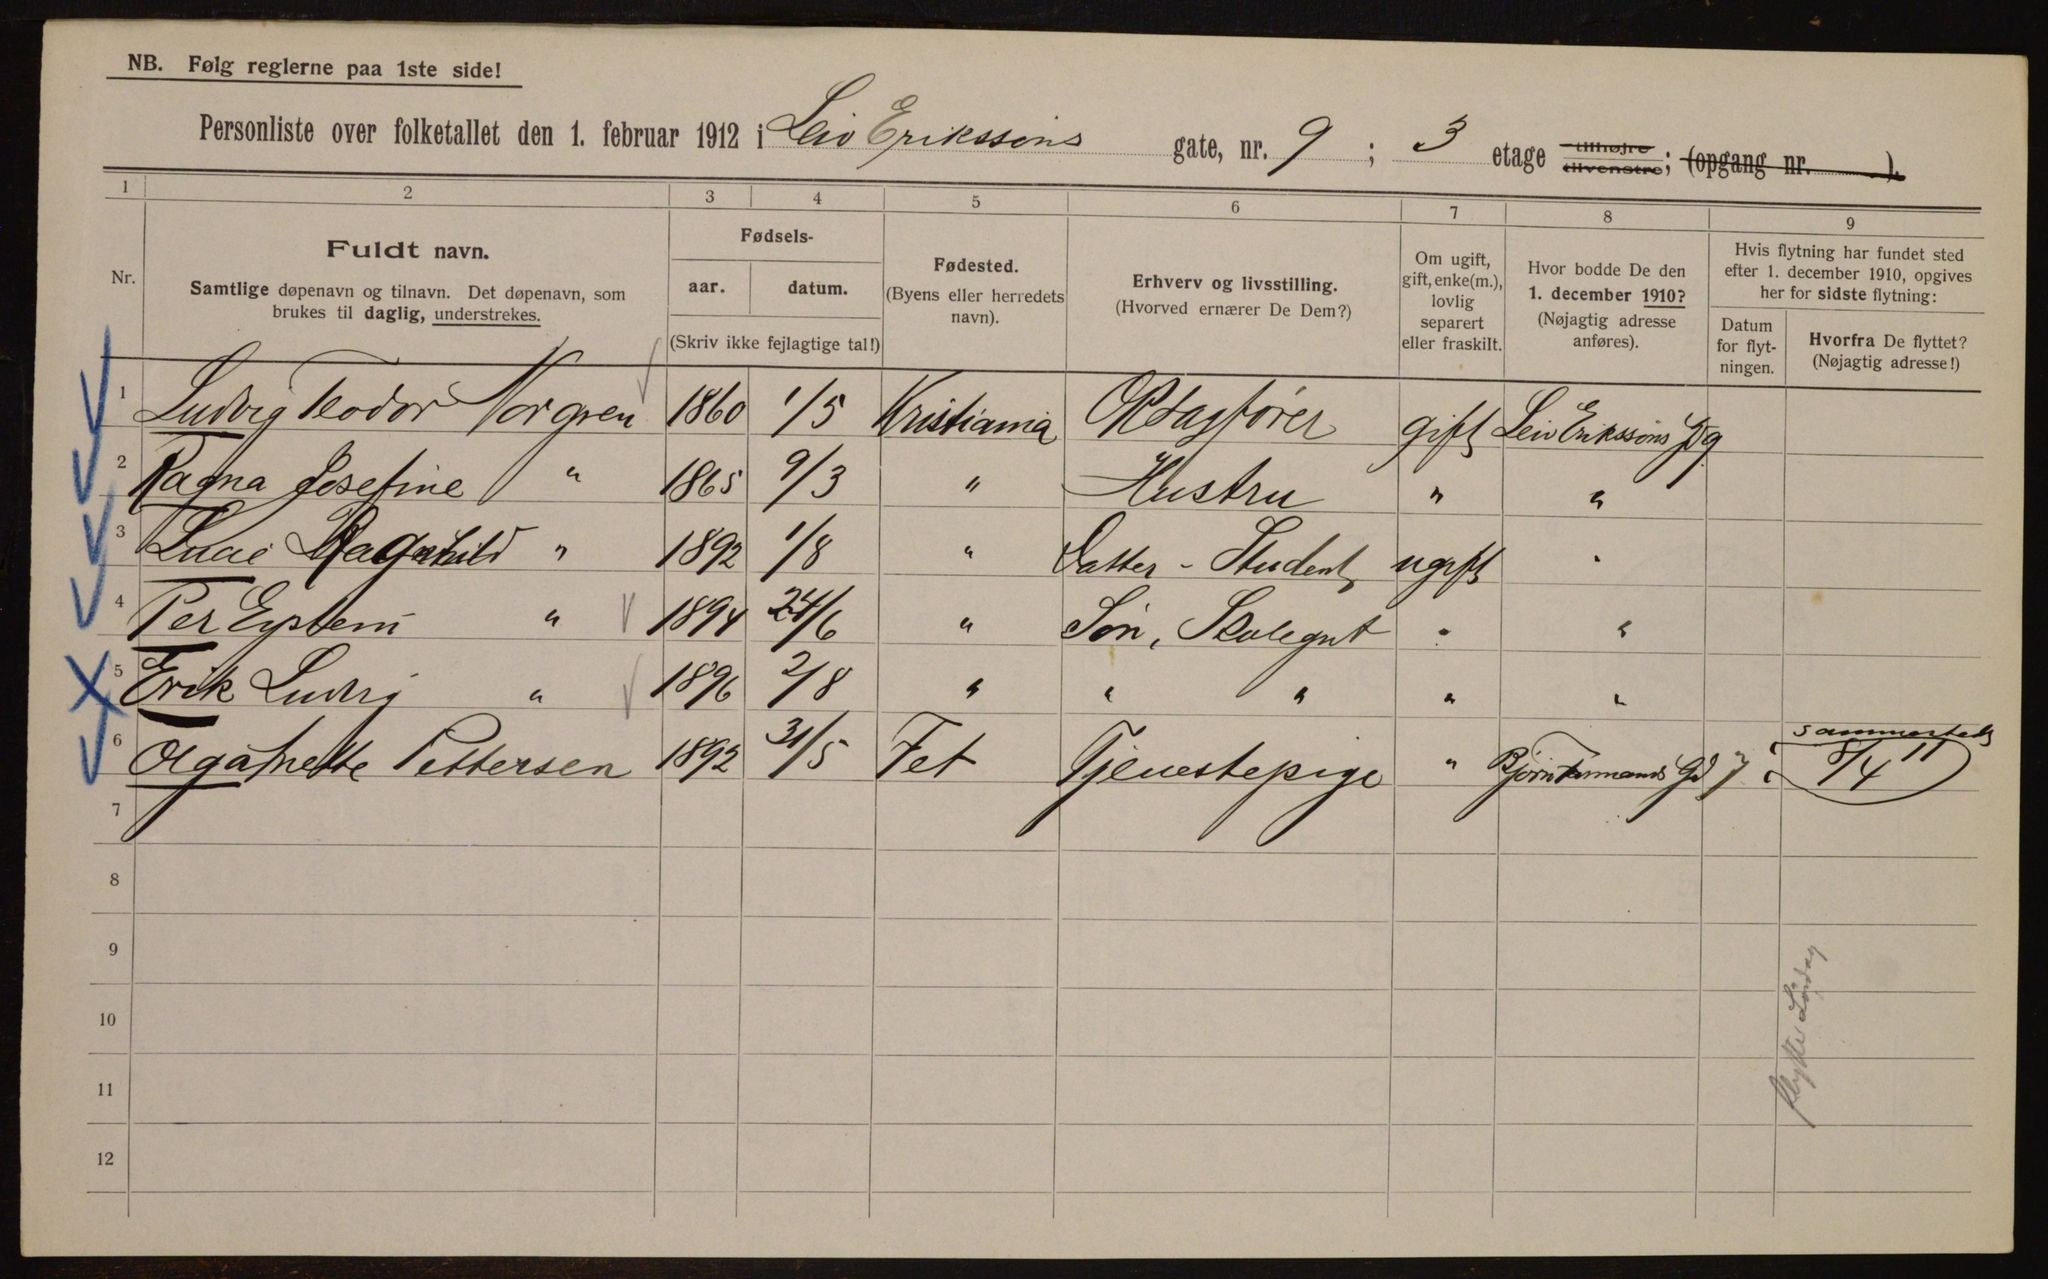 NB. Følg reglerne paa 1ste side!
Personliste over folketallet den 1. februar 1912 i Leiv Erikssøns gate, nr. 9; 3 etage tilhøjre tilvenstre; (opgang nr. ).
1 2 3 4 5 6 7 8 9
Nr.
Fuldt navn.
Samtlige døpenavn og tilnavn. Det døpenavn, som
brukes til daglig, understrekes.
Fødsels-
aar. datum.
(Skriv ikke fejlagtige tal!)
Fødested.
(Byens eller herredets
navn).
Erhverv og livsstilling.
(Hvorved ernærer De Dem?)
Om ugift,
gift, enke(m.),
lovlig
separert
eller fraskilt.
Hvor bodde De den
1. december 1910?
(Nøjagtig adresse
anføres).
Hvis flytning har fundet sted
efter 1. december 1910, opgives
her for sidste flytning:
Datum
for flyt-
ningen.
Hvorfra De flyttet?
(Nøjagtig adresse!)
1 Ludvig Teodor Norgren 1860 1/5 Kristiania gift Leiv Erikssøns gd 9
2 Ragna Josefine " 1865 9/3 " Hustru " "
3 Lucie Ragnhild " 1892 1/8 " Datter - Student ugift "
4 Per Eystein " 1894 24/6 " Søn, Skolegut " "
5 Erik Ludvig " 1896 2/8 " " " " "
6 Olga Anette Pettersen 1892 31/5 Fet Tjenestepige " Gd 7 sammesteds 8/4 11
7
8
9
10
11
12
flytte Lørdag